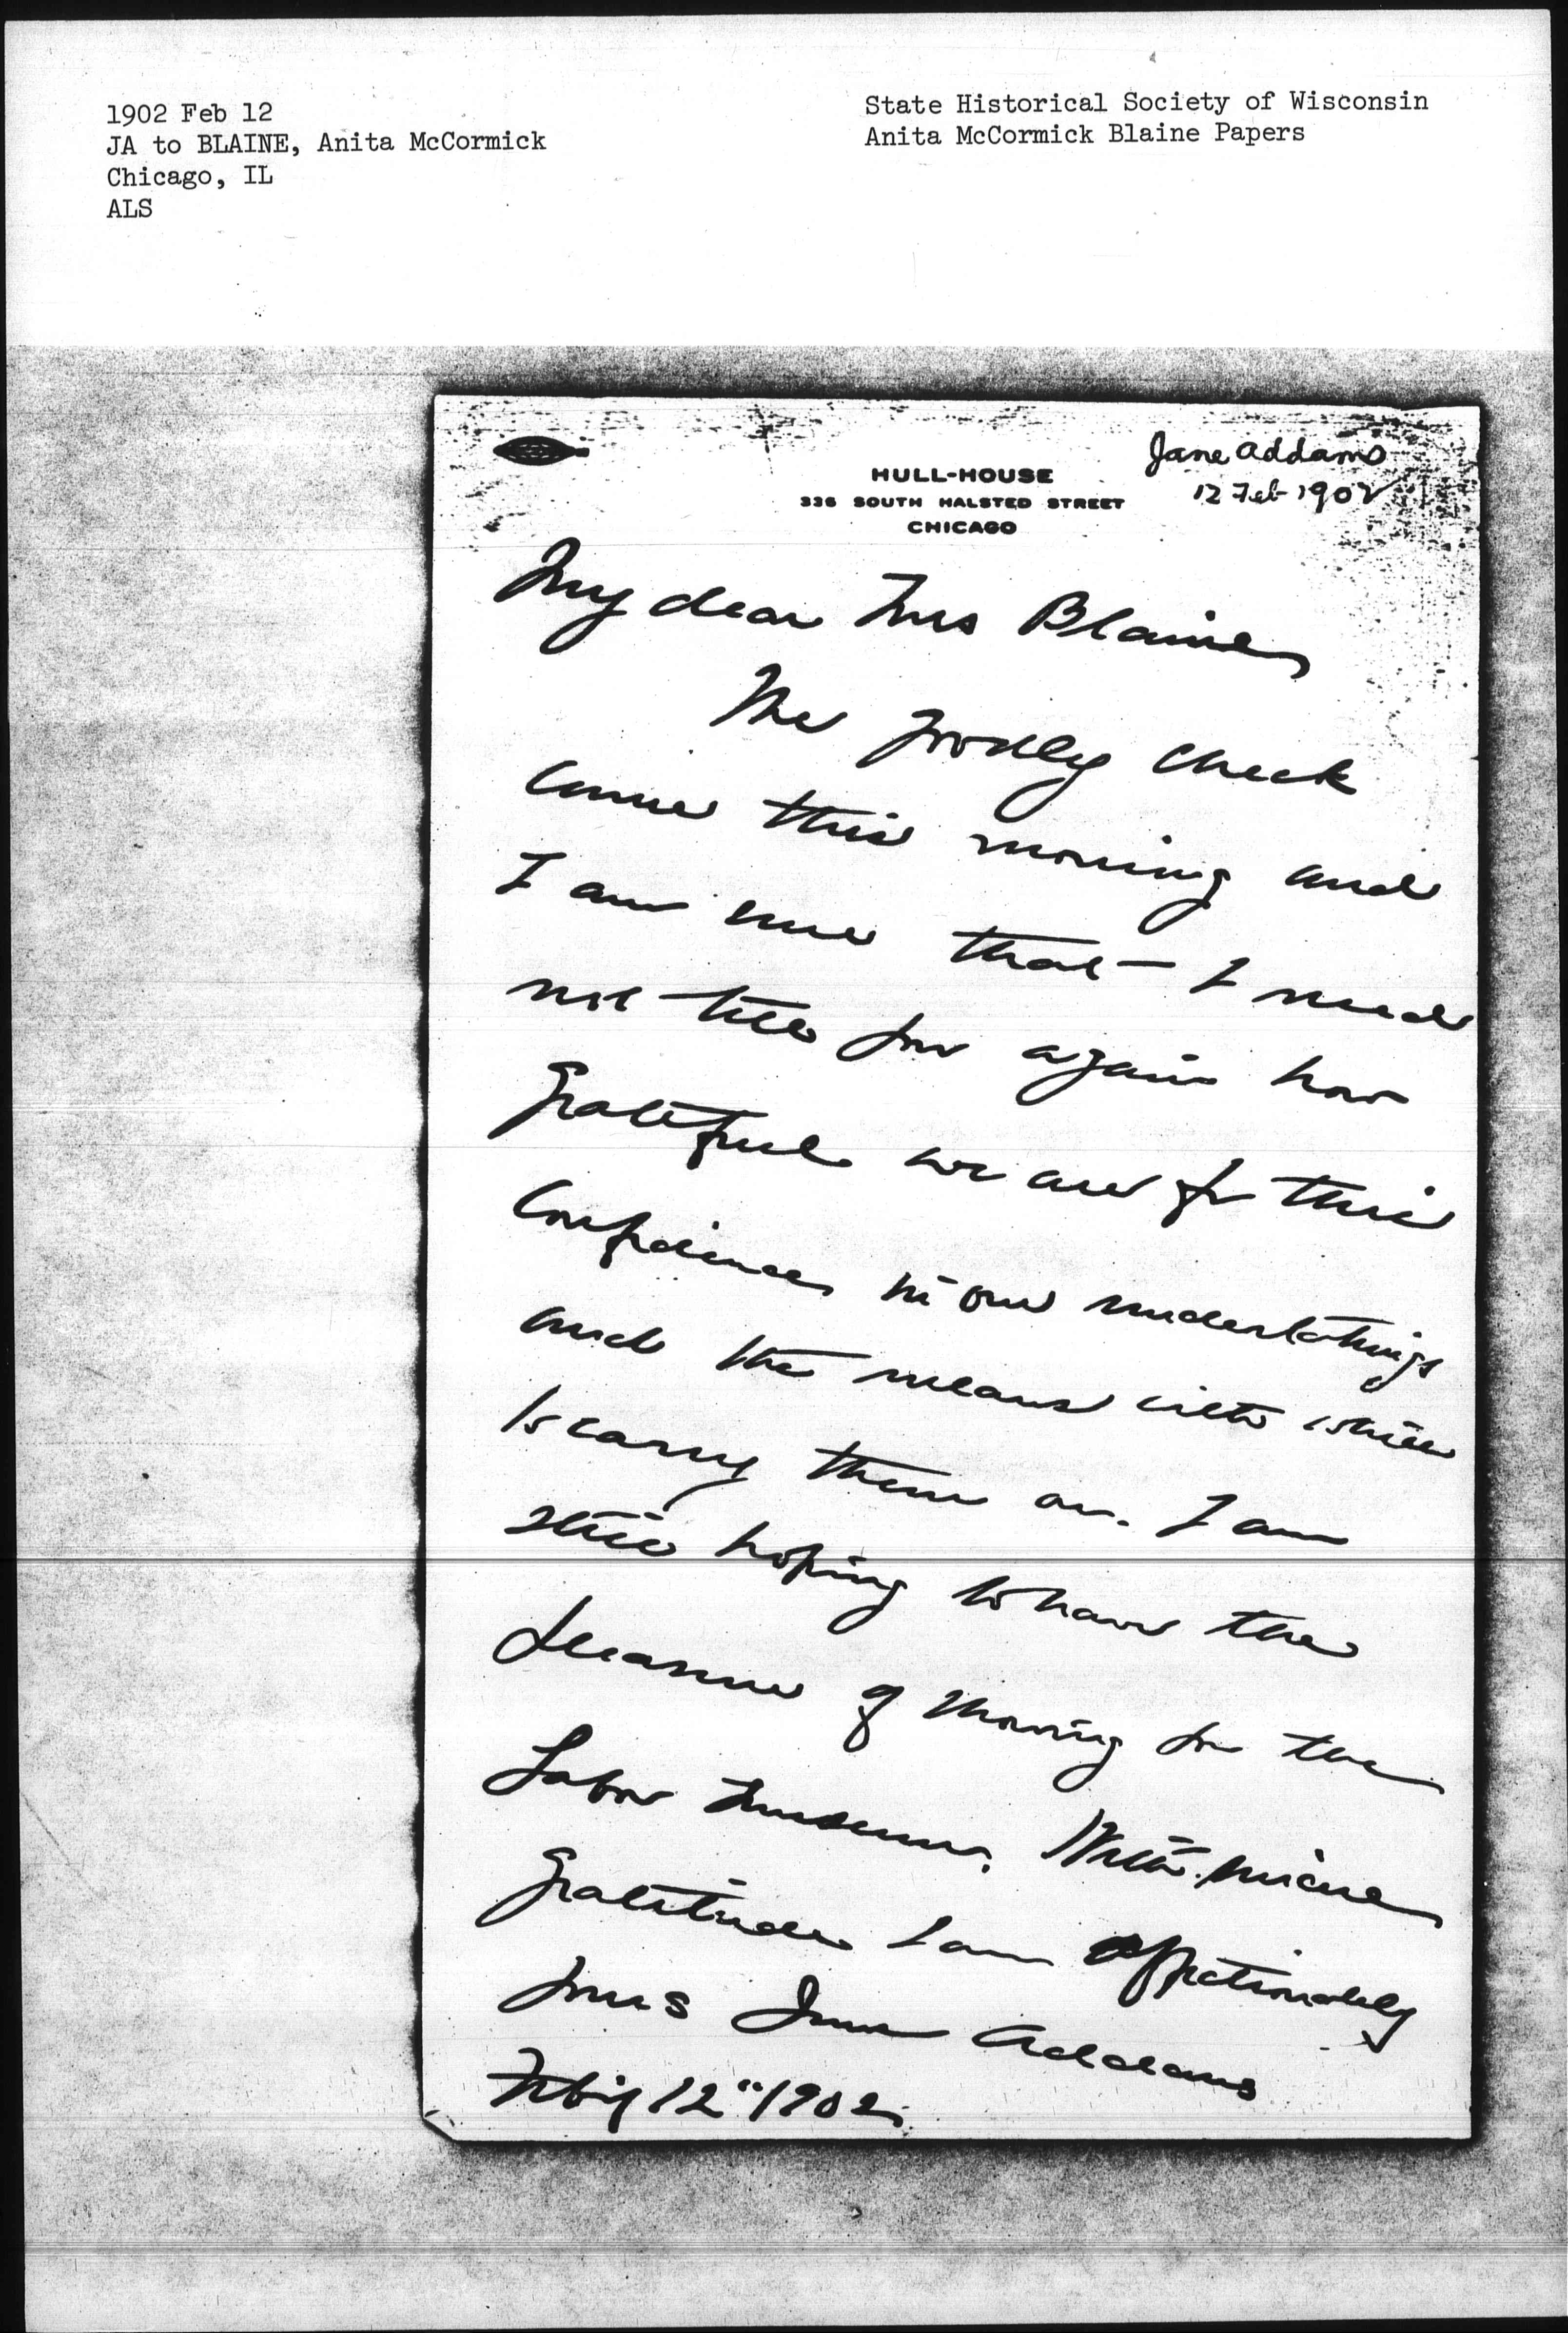 1902 Feb 12
JA to BLAINE, Anita McCormick
Chicago, IL
ALS
State Historical Society of Wisconsin
Anita McCormick Blaine Papers
Jane Addams
12 Feb 1902
HULL-HOUSE
335 SOUTH HALSTED STREET
CHICAGO
My dear Mrs Blaine,
The goodly check
came this morning and
I am sure that I need
not tell you again how
grateful we are for this
confidence in our undertakings
and the means with which
to carry them on. I am
still hoping to have the
pleasure of showing you the
Labor Museum. With sincere
gratitude I am affectionately
yours Jane Addams
Feb'y 12" 1902.